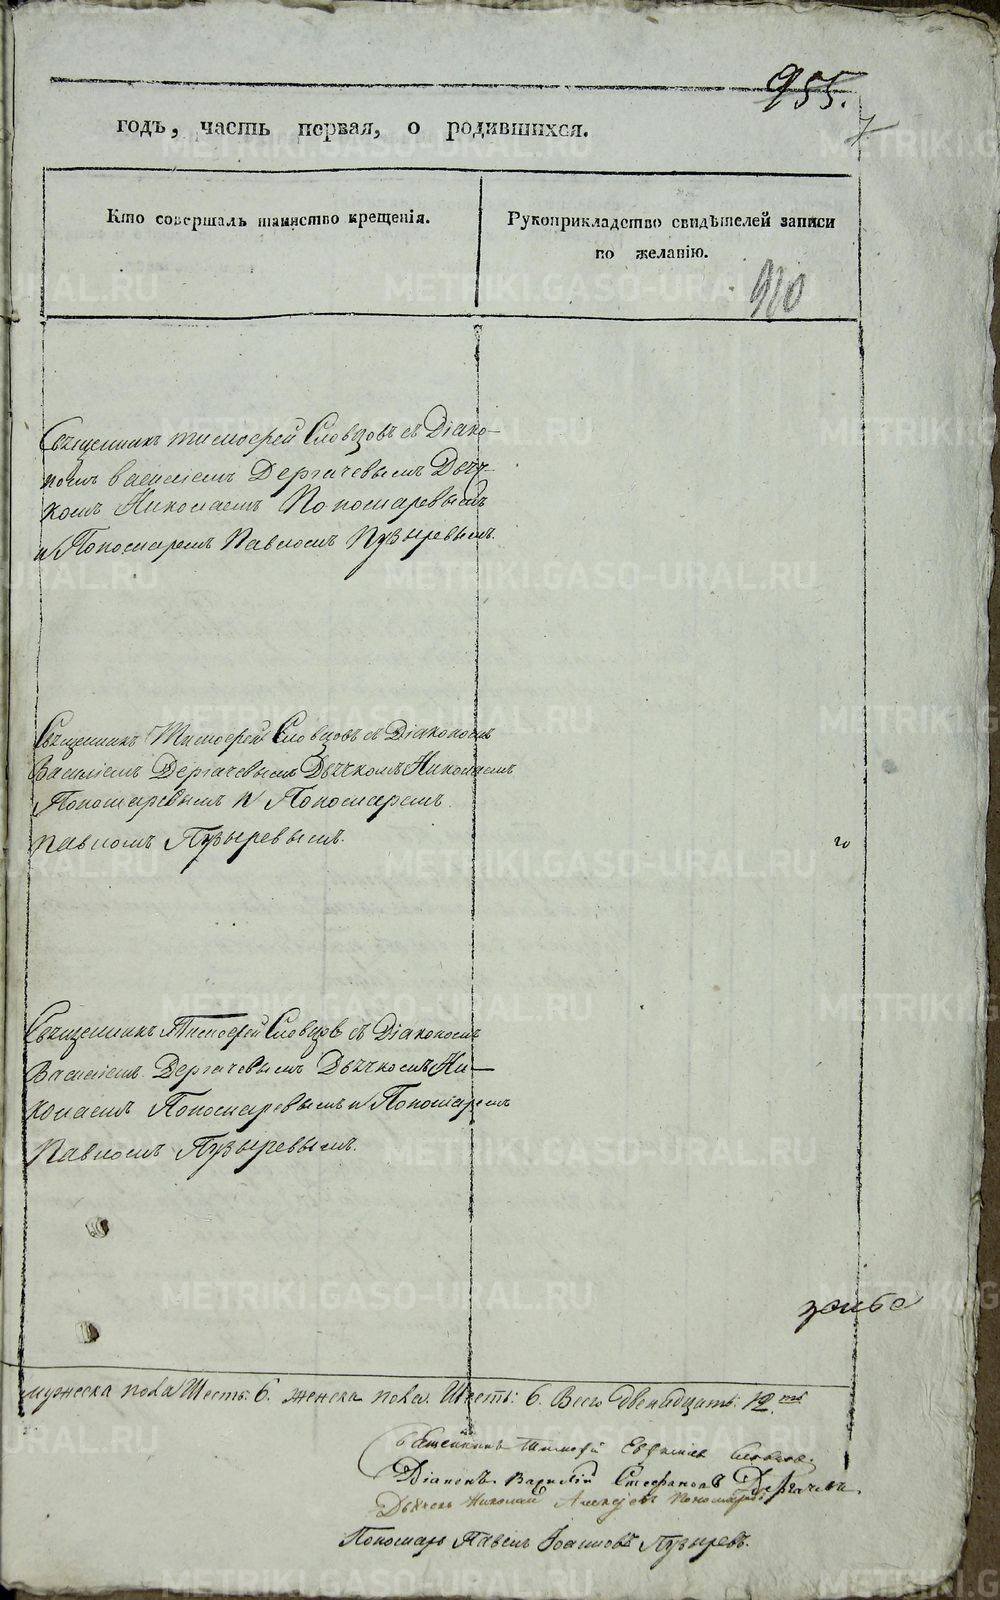 955.
7
годъ, часть первая, о родившихся.
Кто совершалъ таинство крещенія.
Рукоприкладство свидѣтелей записи
по желанію.
910
Священникъ Тимофей Словцовъ съ Діако-
номъ Василіемъ Дергачевымъ Дьяч-
комъ Николаемъ Пономаревымъ
и Пономаремъ Павломъ Пузыревымъ.
Священникъ Тимофей Словцовъ съ Діакономъ
Василіемъ Дергачевымъ Дьячкомъ Николаемъ
Пономаревымъ и Пономаремъ
Павломъ Пузыревымъ.
го
Священникъ Тимофей Словцов съ Діакономъ
Василіемъ Дергачевымъ Дьячкомъ Ни-
колаемъ Пономаревымъ и Пономаремъ
Павломъ Пузыревымъ.
мужеска пола Шесть: 6. женска пола. Шесть: 6. Всего двенадцать: 12.ть
Священникъ Тимофей Словцовъ.
Діаконъ Василій Стефановъ Дергачевъ
Дьячекъ Николай Алексѣевъ Пономаревъ
Пономарь Павелъ Іоанновъ Пузыревъ.
METRIKI.GASO-URAL.RU